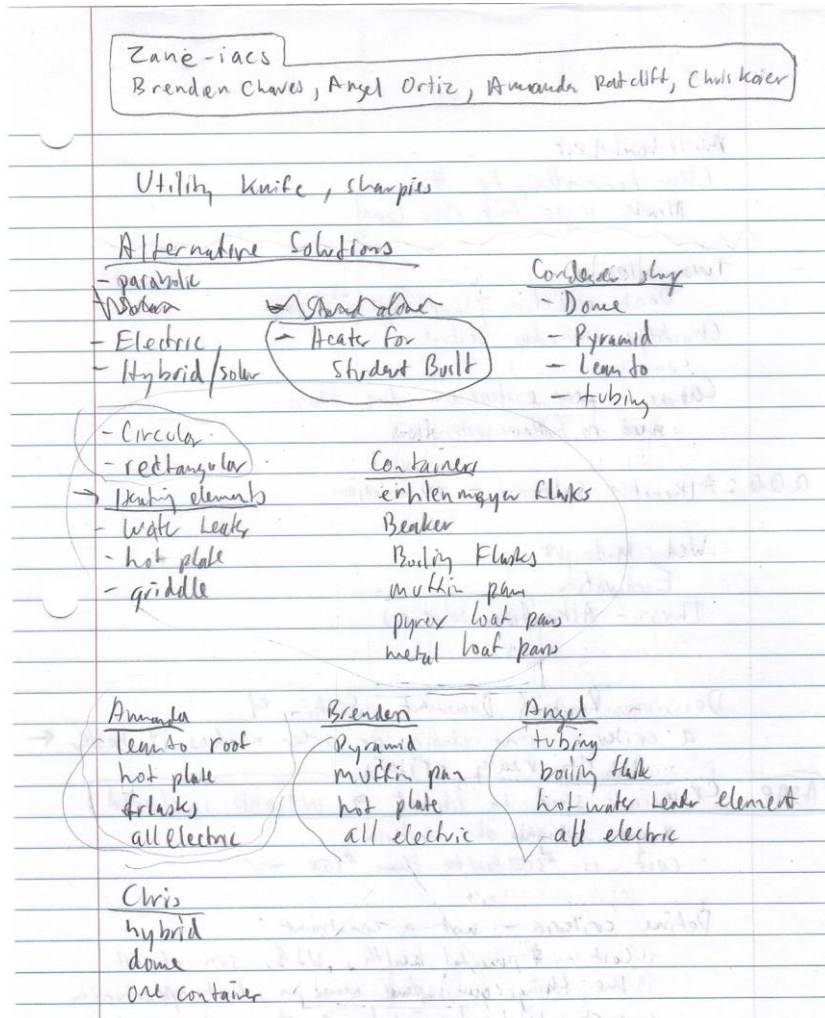 Zane-iacs
Brenden Chaves, Angel Ortiz, Amanda Ratcliff, Chris Koier
Utility Knife, sharpies
Alternative Solutions
- parabolic
- Electric
- Hybrid/solar
- Stand alone
- Heater for
Student Built
Condenser shape
Dome
- Pyramid
- Lean to
- tubing
- Circular
- rectangular
→ Heating elements
- water heater
- hot plate
- griddle
Containers
erhlenmeyer flasks
Beaker
Boiling Flasks
muffin pan
pyrex loaf pans
metal loaf pans
Amanda
lean to roof
hot plate
flasks
all electric
Brenden
Pyramid
muffin pan
hot plate
all electric
Angel
tubing
boiling flask
hot water heater element
all electric
Chris
hybrid
dome
one container